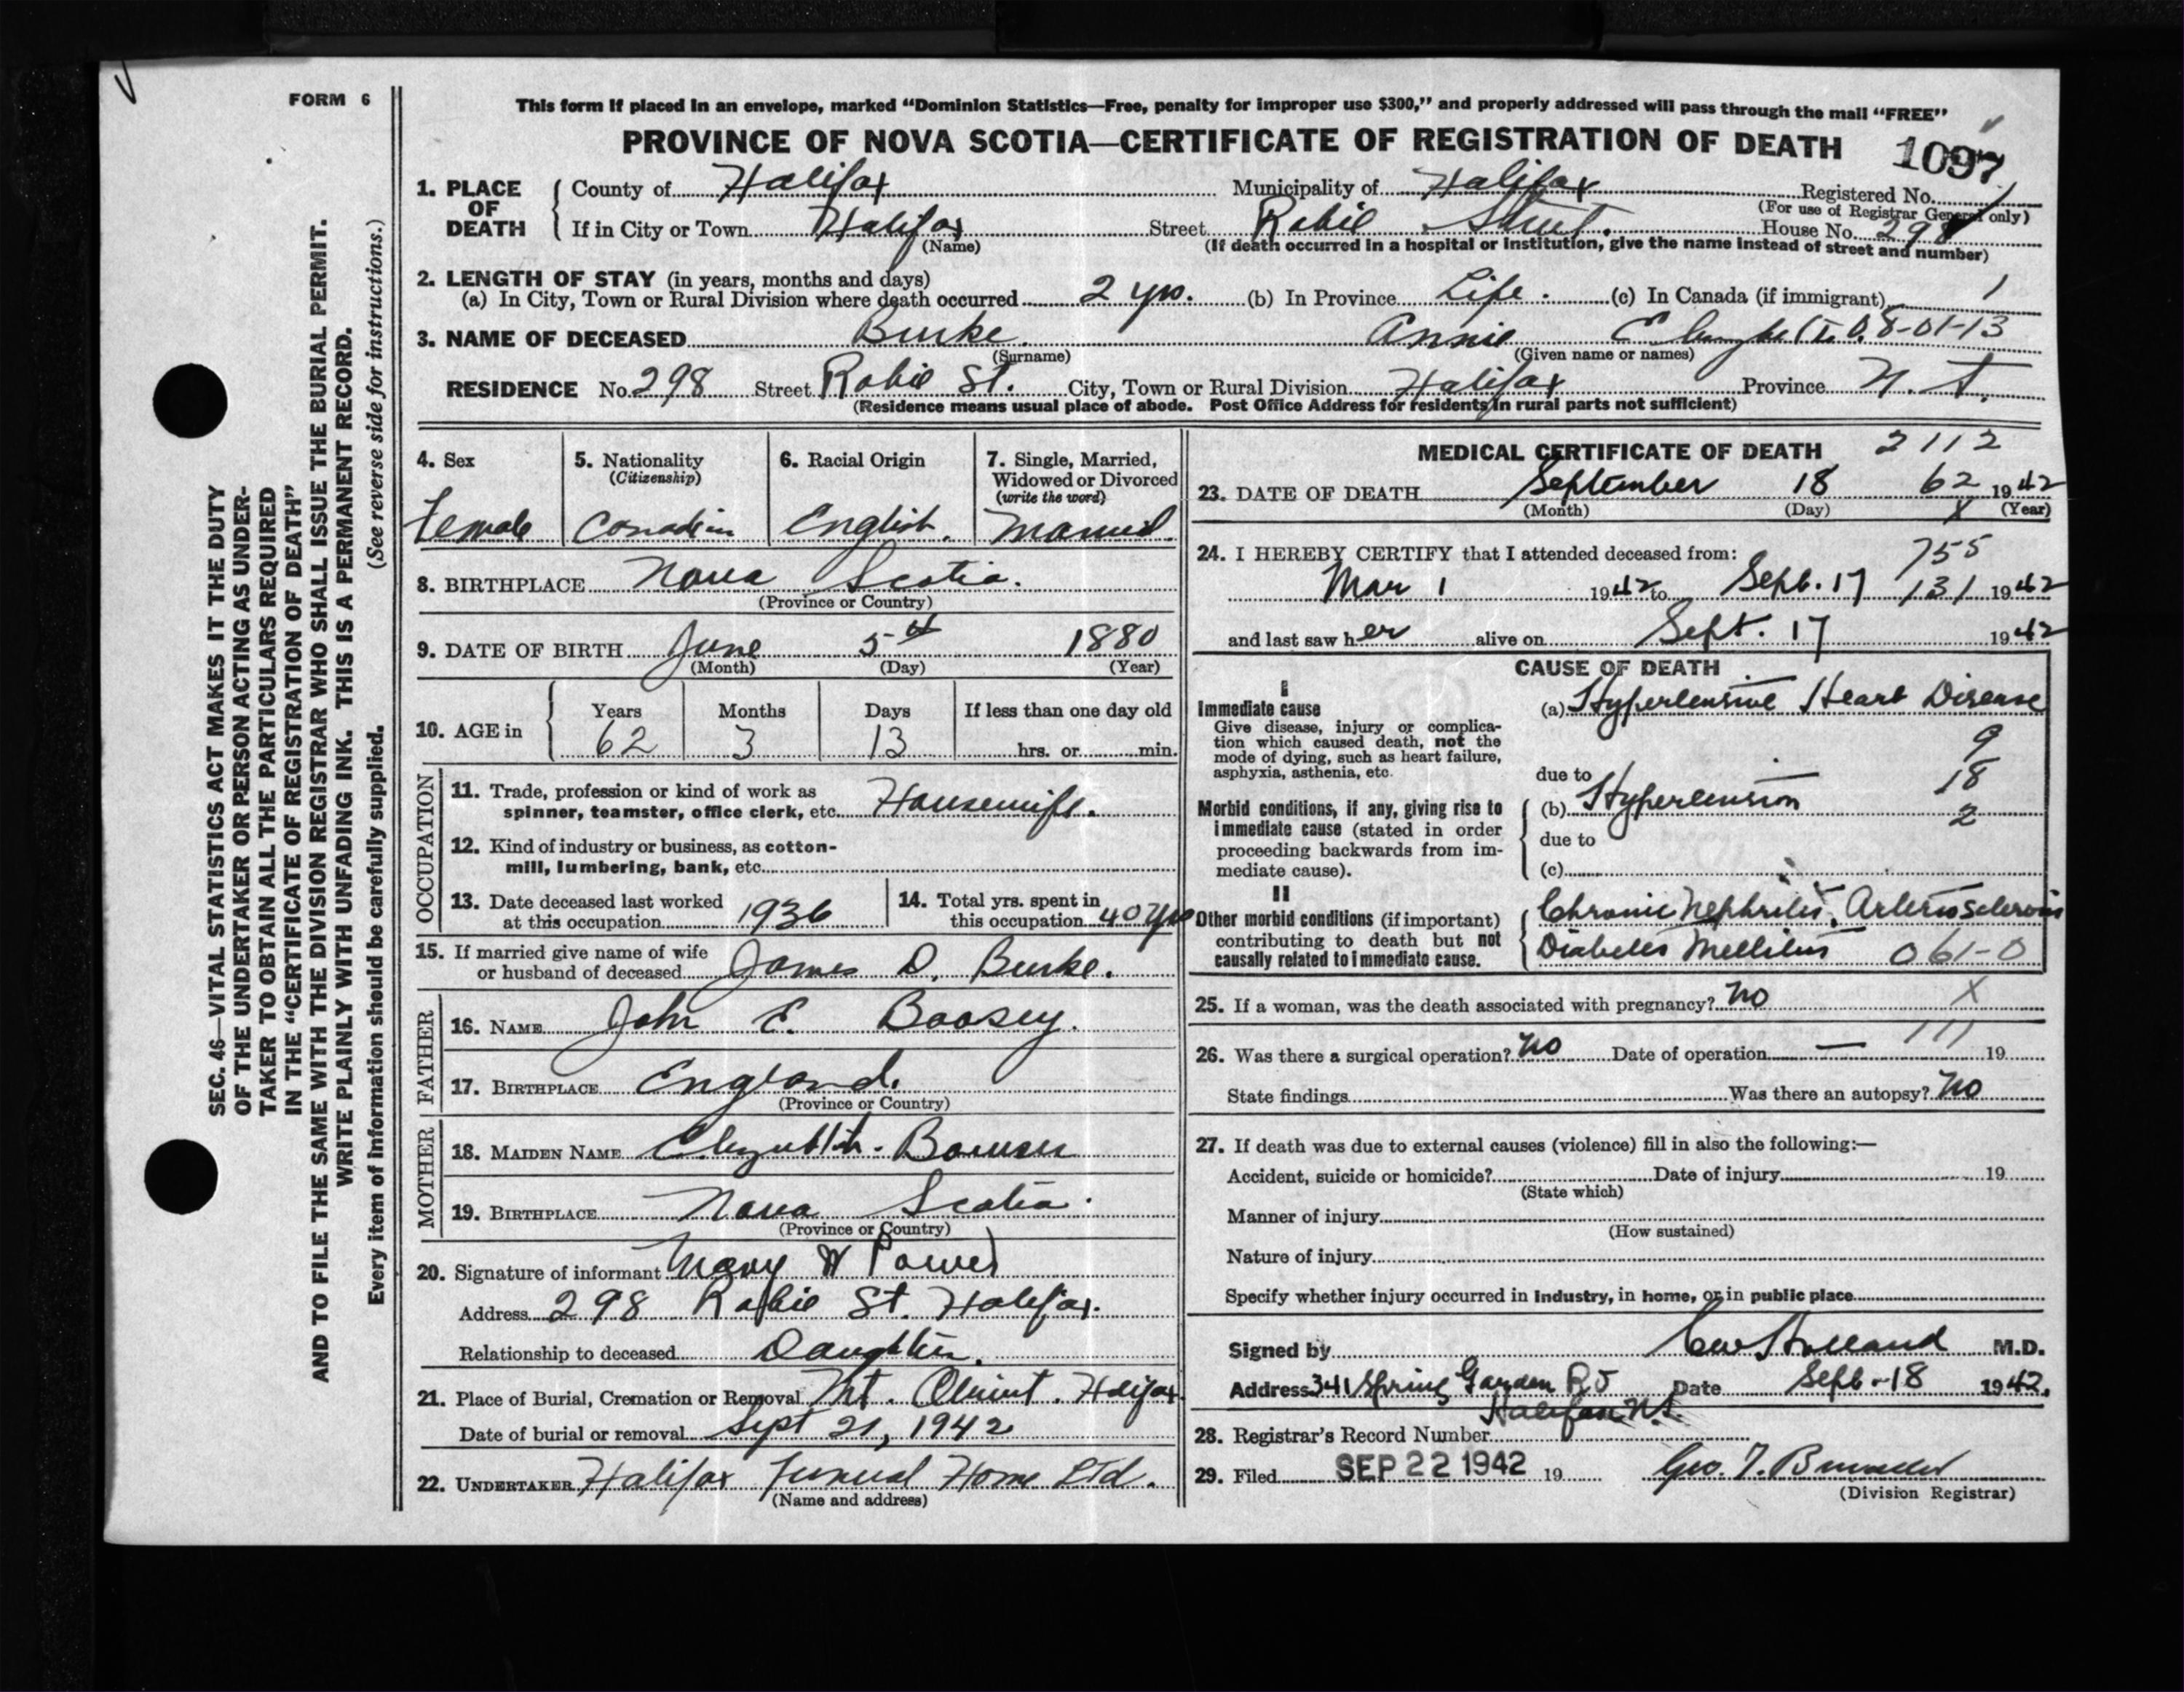 FORM 6
This form if placed in an envelope, marked "Dominion Statistics—Free, penalty for improper use $300," and properly addressed will pass through the mail "FREE"
PROVINCE OF NOVA SCOTIA—CERTIFICATE OF REGISTRATION OF DEATH 1097
1. PLACE OF DEATH County of Halifax Municipality of Halifax Registered No.
(For use of Registrar General only)
If in City or Town Halifax Street Robie Street. House No. 298
(Name) (If death occurred in a hospital or institution, give the name instead of street and number)
2. LENGTH OF STAY (in years, months and days)
(a) In City, Town or Rural Division where death occurred 2 yrs. (b) In Province Life. (c) In Canada (if immigrant) 1
3. NAME OF DECEASED Burke. Annie 8-01-13
(Surname) (Given name or names)
RESIDENCE No. 298 Street Robie St. City, Town or Rural Division Halifax Province N. S.
(Residence means usual place of abode. Post Office Address for residents in rural parts not sufficient)
4. Sex 5. Nationality 6. Racial Origin 7. Single, Married,
(Citizenship) Widowed or Divorced
(write the word)
Female Canadian English. Married.
8. BIRTHPLACE Nova Scotia.
(Province or Country)
9. DATE OF BIRTH June 5th 1880
(Month) (Day) (Year)
10. AGE in Years Months Days If less than one day old
62 3 13 hrs. or min.
OCCUPATION
11. Trade, profession or kind of work as
spinner, teamster, office clerk, etc. Housewife.
12. Kind of industry or business, as cotton-
mill, lumbering, bank, etc.
13. Date deceased last worked 14. Total yrs. spent in
at this occupation 1936 this occupation 40 yrs
15. If married give name of wife
or husband of deceased James D. Burke.
FATHER
16. NAME John E. Boosey.
17. BIRTHPLACE England.
(Province or Country)
MOTHER
18. MAIDEN NAME Elizabeth. Bowser
19. BIRTHPLACE Nova Scotia.
(Province or Country)
20. Signature of informant Mary W Power
Address 298 Robie St. Halifax.
Relationship to deceased Daughter.
21. Place of Burial, Cremation or Removal Mt. Olivint. Halifax.
Date of burial or removal Sept 21, 1942
22. UNDERTAKER Halifax Funeral Home Ltd.
(Name and address)
MEDICAL CERTIFICATE OF DEATH 2112
23. DATE OF DEATH September 18 62 1942
(Month) (Day) X (Year)
24. I HEREBY CERTIFY that I attended deceased from: 755
Mar 1 1942 to Sept. 17 131 1942
and last saw her alive on Sept. 17 1942
CAUSE OF DEATH
I
Immediate cause (a) Hypertensive Heart Disease
Give disease, injury or complica-
tion which caused death, not the 9
mode of dying, such as heart failure,
asphyxia, asthenia, etc. due to 18
Morbid conditions, if any, giving rise to (b) Hypertension
immediate cause (stated in order 2
proceeding backwards from im- due to
mediate cause). (c)
II
Other morbid conditions (if important) Chronic Nephritis, Arteriosclerosis
contributing to death but not
causally related to immediate cause. Diabetes Mellitus 061-0
25. If a woman, was the death associated with pregnancy? No X
26. Was there a surgical operation? No Date of operation — 111 19
State findings Was there an autopsy? No
27. If death was due to external causes (violence) fill in also the following:—
Accident, suicide or homicide? Date of injury 19
(State which)
Manner of injury
(How sustained)
Nature of injury
Specify whether injury occurred in industry, in home, or in public place
Signed by CW Holland M.D.
Address 341 Spring Garden Rd Date Sept.-18 1942.
Halifax N.S.
28. Registrar's Record Number
29. Filed SEP 22 1942 19 Geo. T.
(Division Registrar)
SEC. 46—VITAL STATISTICS ACT MAKES IT THE DUTY
OF THE UNDERTAKER OR PERSON ACTING AS UNDER-
TAKER TO OBTAIN ALL THE PARTICULARS REQUIRED
IN THE "CERTIFICATE OF REGISTRATION OF DEATH"
AND TO FILE THE SAME WITH THE DIVISION REGISTRAR WHO SHALL ISSUE THE BURIAL PERMIT.
WRITE PLAINLY WITH UNFADING INK. THIS IS A PERMANENT RECORD.
Every item of information should be carefully supplied. (See reverse side for instructions.)